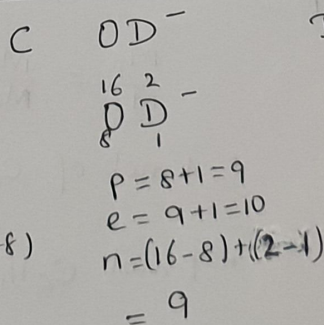 C OD⁻
16 2
O D⁻
8 1
p = 8+1=9
e = 9+1=10
8) n=(16-8)+(2-1)
= 9